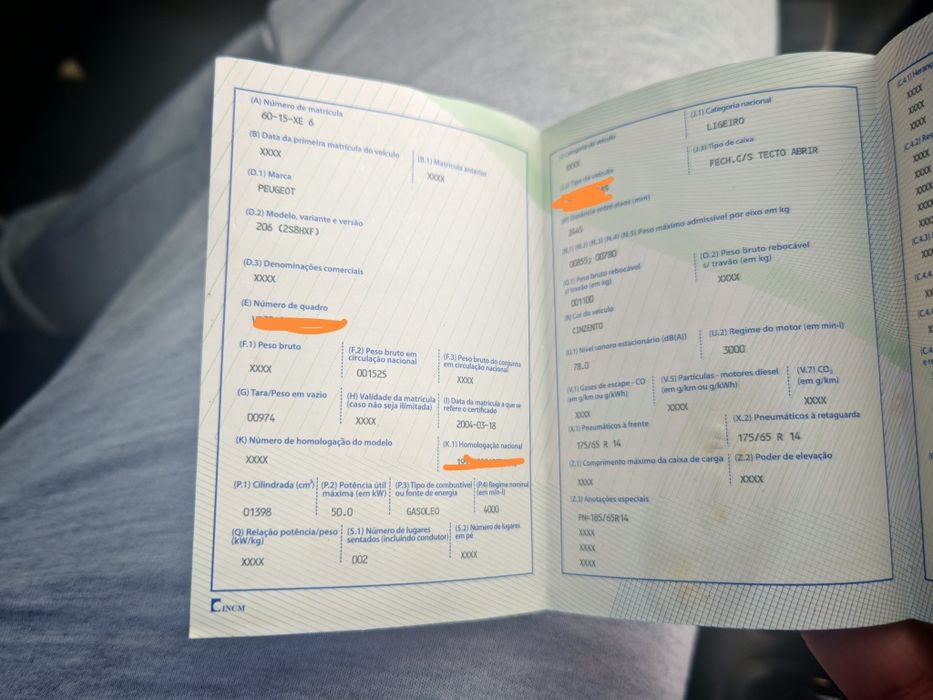 (A) Número de matrícula
60-15-XE 6
(B) Data da primeira matrícula do veículo
XXXX
(B.1) Matrícula anterior
XXXX
(D.1) Marca
PEUGEOT
(D.2) Modelo, variante e versão
206 (2S8HXF)
(D.3) Denominações comerciais
XXXX
(E) Número de quadro
(F.1) Peso bruto
XXXX
(F.2) Peso bruto em
circulação nacional
001525
(F.3) Peso bruto do conjunto
em circulação nacional
XXXX
(G) Tara/Peso em vazio
00974
(H) Validade da matrícula
(caso não seja ilimitada)
XXXX
(I) Data da matrícula a que se
refere o certificado
2004-03-18
(K) Número de homologação do modelo
XXXX
(K.1) Homologação nacional
(P.1) Cilindrada (cm³)
01398
(P.2) Potência útil
máxima (em kW)
50.0
(P.3) Tipo de combustível
ou fonte de energia
GASOLEO
(P.4) Regime nominal
(em min-l)
4000
(Q) Relação potência/peso
(kW/kg)
XXXX
(S.1) Número de lugares
sentados (incluindo condutor)
002
(S.2) Número de lugares
em pé
XXXX
INCM
(J) Categoria do veículo
XXXX
(J.1) Categoria nacional
LIGEIRO
(J.2) Tipo de veículo
(J.3) Tipo de caixa
FECH.C/S TECTO ABRIR
(M) Distância entre eixos (mm)
2445
(N.1) (N.2) (N.3) (N.4) (N.5) Peso máximo admissível por eixo em kg
00855; 00780
(O.1) Peso bruto rebocável
c/ travão (em kg)
001100
(O.2) Peso bruto rebocável
s/ travão (em kg)
XXXX
(R) Cor do veículo
CINZENTO
(U.1) Nível sonoro estacionário (dB(A))
78.0
(U.2) Regime do motor (em min-l)
3000
(V.1) Gases de escape - CO
(em g/km ou g/kWh)
XXXX
(V.5) Partículas - motores diesel
(em g/km ou g/kWh)
XXXX
(V.7) CO₂
(em g/km)
XXXX
(X.1) Pneumáticos à frente
175/65 R 14
(X.2) Pneumáticos à retaguarda
175/65 R 14
(Z.1) Comprimento máximo da caixa de carga
XXXX
(Z.2) Poder de elevação
XXXX
(Z.3) Anotações especiais
PN=185/65R14
XXXX
XXXX
XXXX
(C.4.1)
XXXX
XXXX
XXXX
(C.4.2)
XXXX